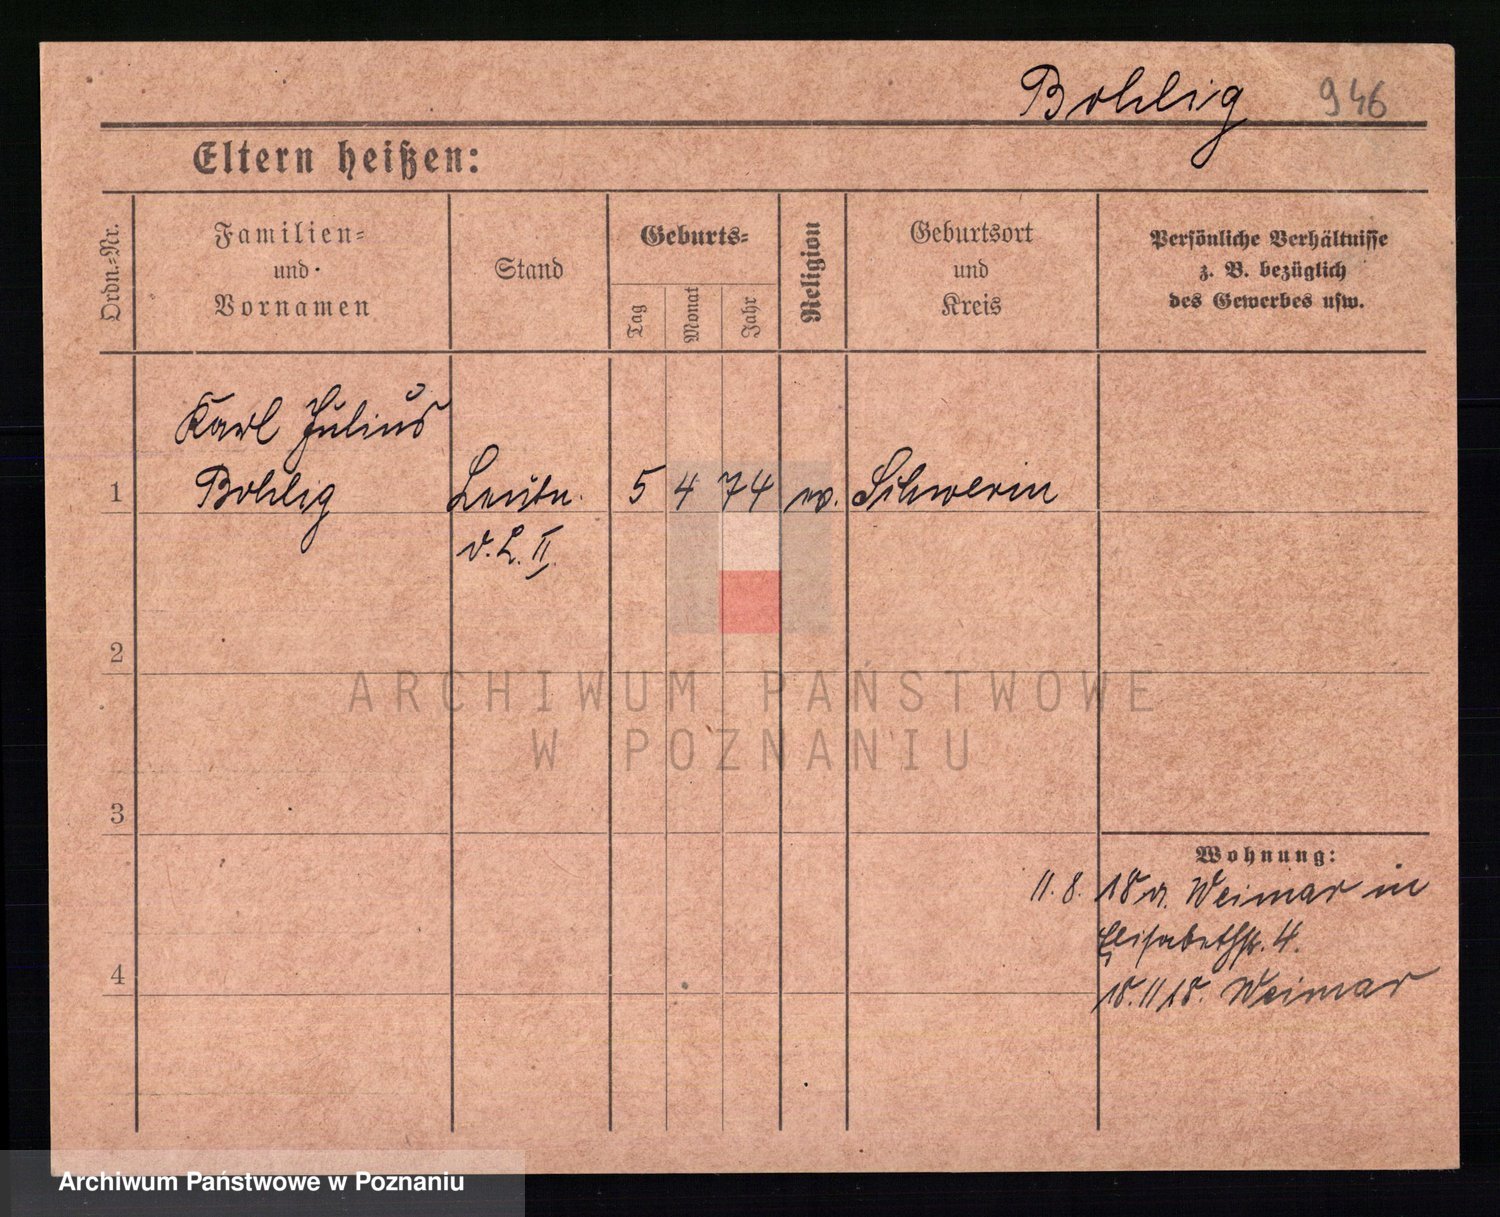 Bohlig 946
Eltern heißen:
Ordn.-Nr.
Familien-
und
Vornamen
Stand
Geburts-
Tag
Monat
Jahr
Religion
Geburtsort
und
Kreis
Persönliche Verhältnisse
z. B. bezüglich
des Gewerbes usw.
Karl Julius
1 Bohlig Leutn. 5 4 74 ev. Schwerin
d. L. II.
2
ARCHIWUM PAŃSTWOWE
W POZNANIU
3
Wohnung:
11. 8. 18 v. Weimar in
Elisabethstr. 4.
4
18.11.18. Weimar
Archiwum Państwowe w Poznaniu